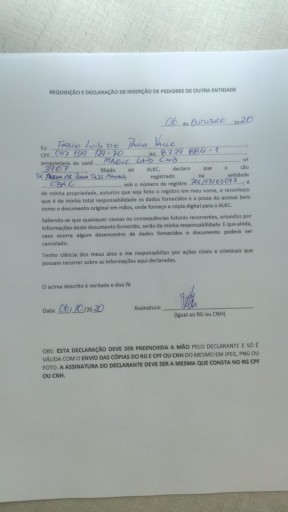 REQUISIÇÃO E DECLARAÇÃO DE INSERÇÃO DE PEDIGREE DE OUTRA ENTIDADE
06 de Outubro 2020
Eu Fabio Luis de Paula Valle
CPF RG
proprietário do canil MAGIC LAND CNB nº
3907 filiado ao ALKC, declaro que o cão
registrado na entidade
CBKC sob o número de registro é
de minha propriedade, autorizo que seja feito o registro em meu nome, e reconheço
que é de minha total responsabilidade os dados fornecidos e a posse do animal bem
como o documento original em mãos, onde forneço a cópia digital para o ALKC.
Sabendo-se que quaisquer causas ou consequências futuras recorrentes, oriundos por
informações deste documento fornecido, serão de minha responsabilidade. E que ainda,
caso ocorra algum desencontro de dados fornecidos o documento poderá ser
cancelado.
Tenho ciência dos meus atos e me responsabilizo por ações cíveis e criminais que
possam recorrer sobre as informações aqui declaradas.
O acima descrito é verdade e dou fé
Data: 06/10/2020 Assinatura:
(Igual ao RG ou CNH)
OBS: ESTA DECLARAÇÃO DEVE SER PREENCHIDA A MÃO PELO DECLARANTE E SÓ É
VÁLIDA COM O ENVIO DAS CÓPIAS DO RG E CPF OU CNH DO MESMO EM JPEG, PNG OU
FOTO. A ASSINATURA DO DECLARANTE DEVE SER A MESMA QUE CONSTA NO RG CPF
OU CNH.